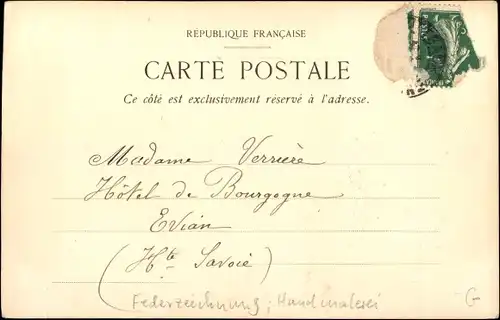 RÉPUBLIQUE FRANÇAISE
CARTE POSTALE
Ce côté est exclusivement réservé à l'adresse.
Madame Verrière
Hôtel de Bourgogne
Evian
(Hte Savoie)
Federzeichnung; Handmalerei G